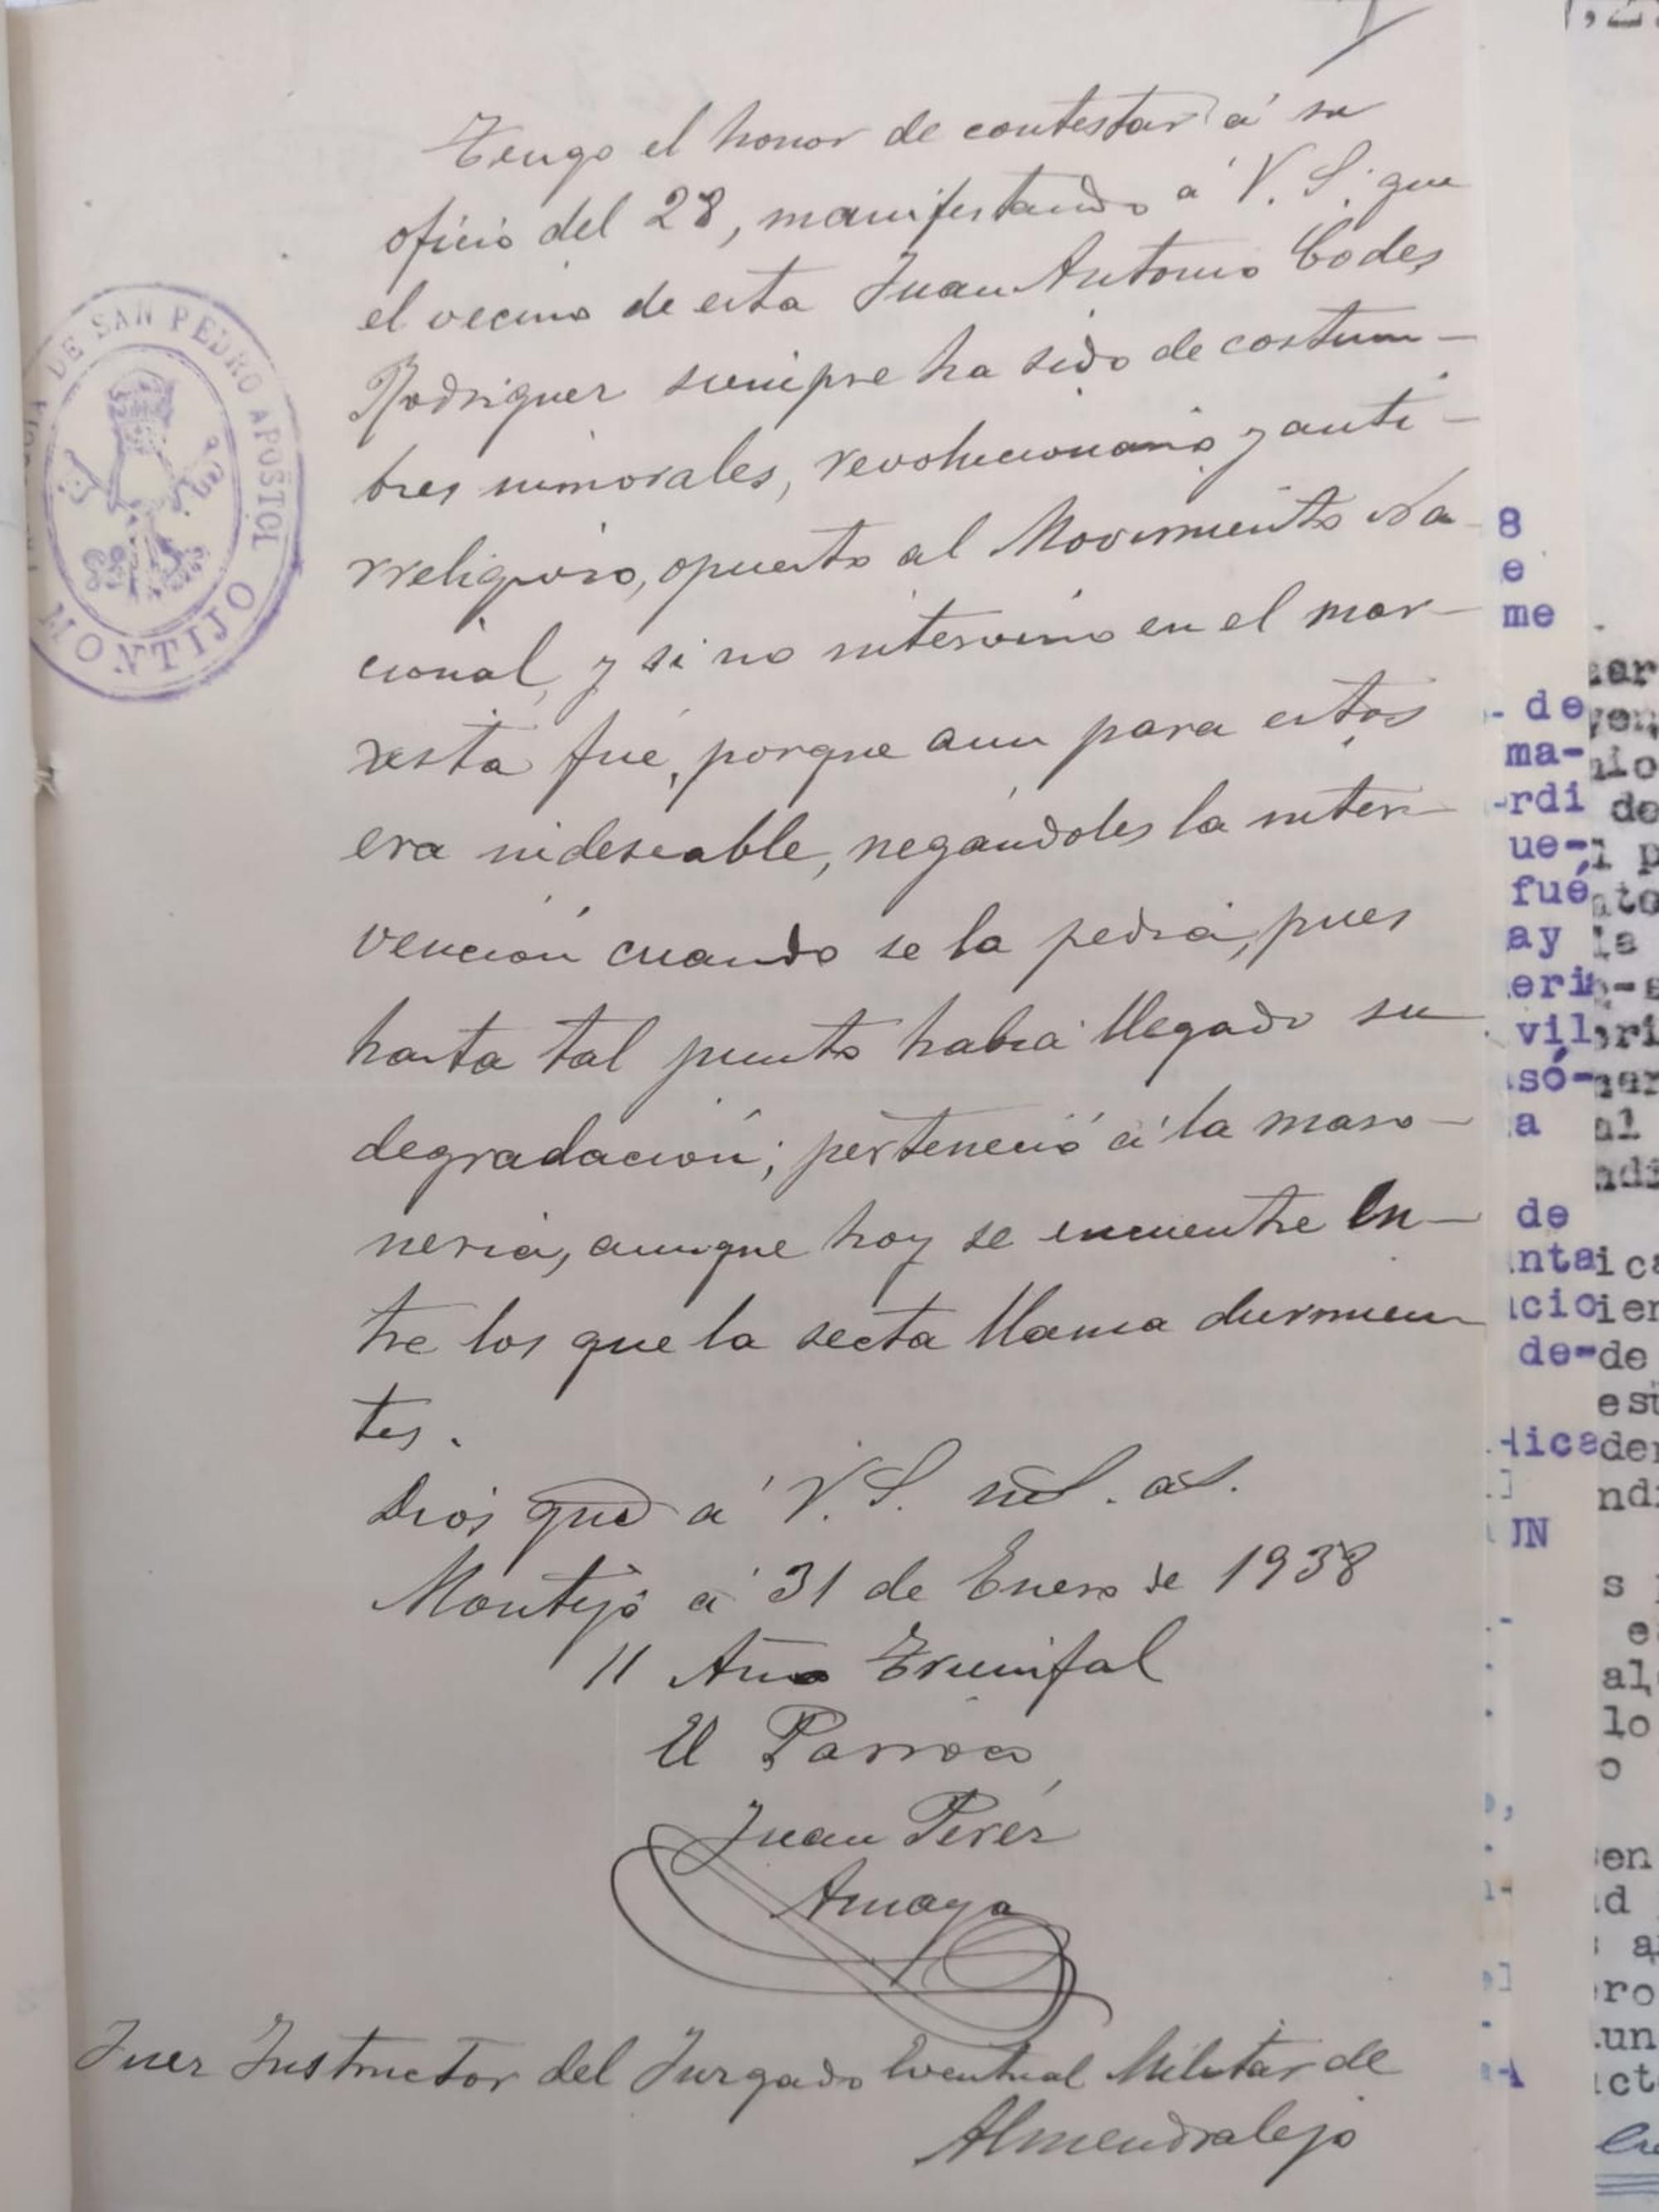 Tengo el honor de contestar á su
oficio del 28, manifestando á V. S. que
el vecino de esta Juan Antonio Codes
Rodriguez siempre ha sido de costum-
bres inmorales, revolucionario y anti-
rreligioso, opuesto al Movimiento Na-
cional, y si no intervino en el mar-
xista fué, porque aun para estos
era indeseable, negándoles la inter-
vención cuando se la pedia, pues
hasta tal punto habia llegado su
degradación; perteneció á la maso-
neria, aunque hoy se encuentre en-
tre los que la secta llama durmien-
tes.
Dios gue á V. S. ms. as.
Montijo á 31 de Enero de 1938
II Año Triunfal
El Parroco
Juan Pérez
Amaya
Juez Instructor del Juzgado Eventual Militar de
Almendralejo
DE SAN PEDRO APOSTOL
MONTIJO
8
e
me
de
ma-
rdi
ue-
fué
ay
eri
vil
só-
a
de
nta
icio
de-
dica
UN